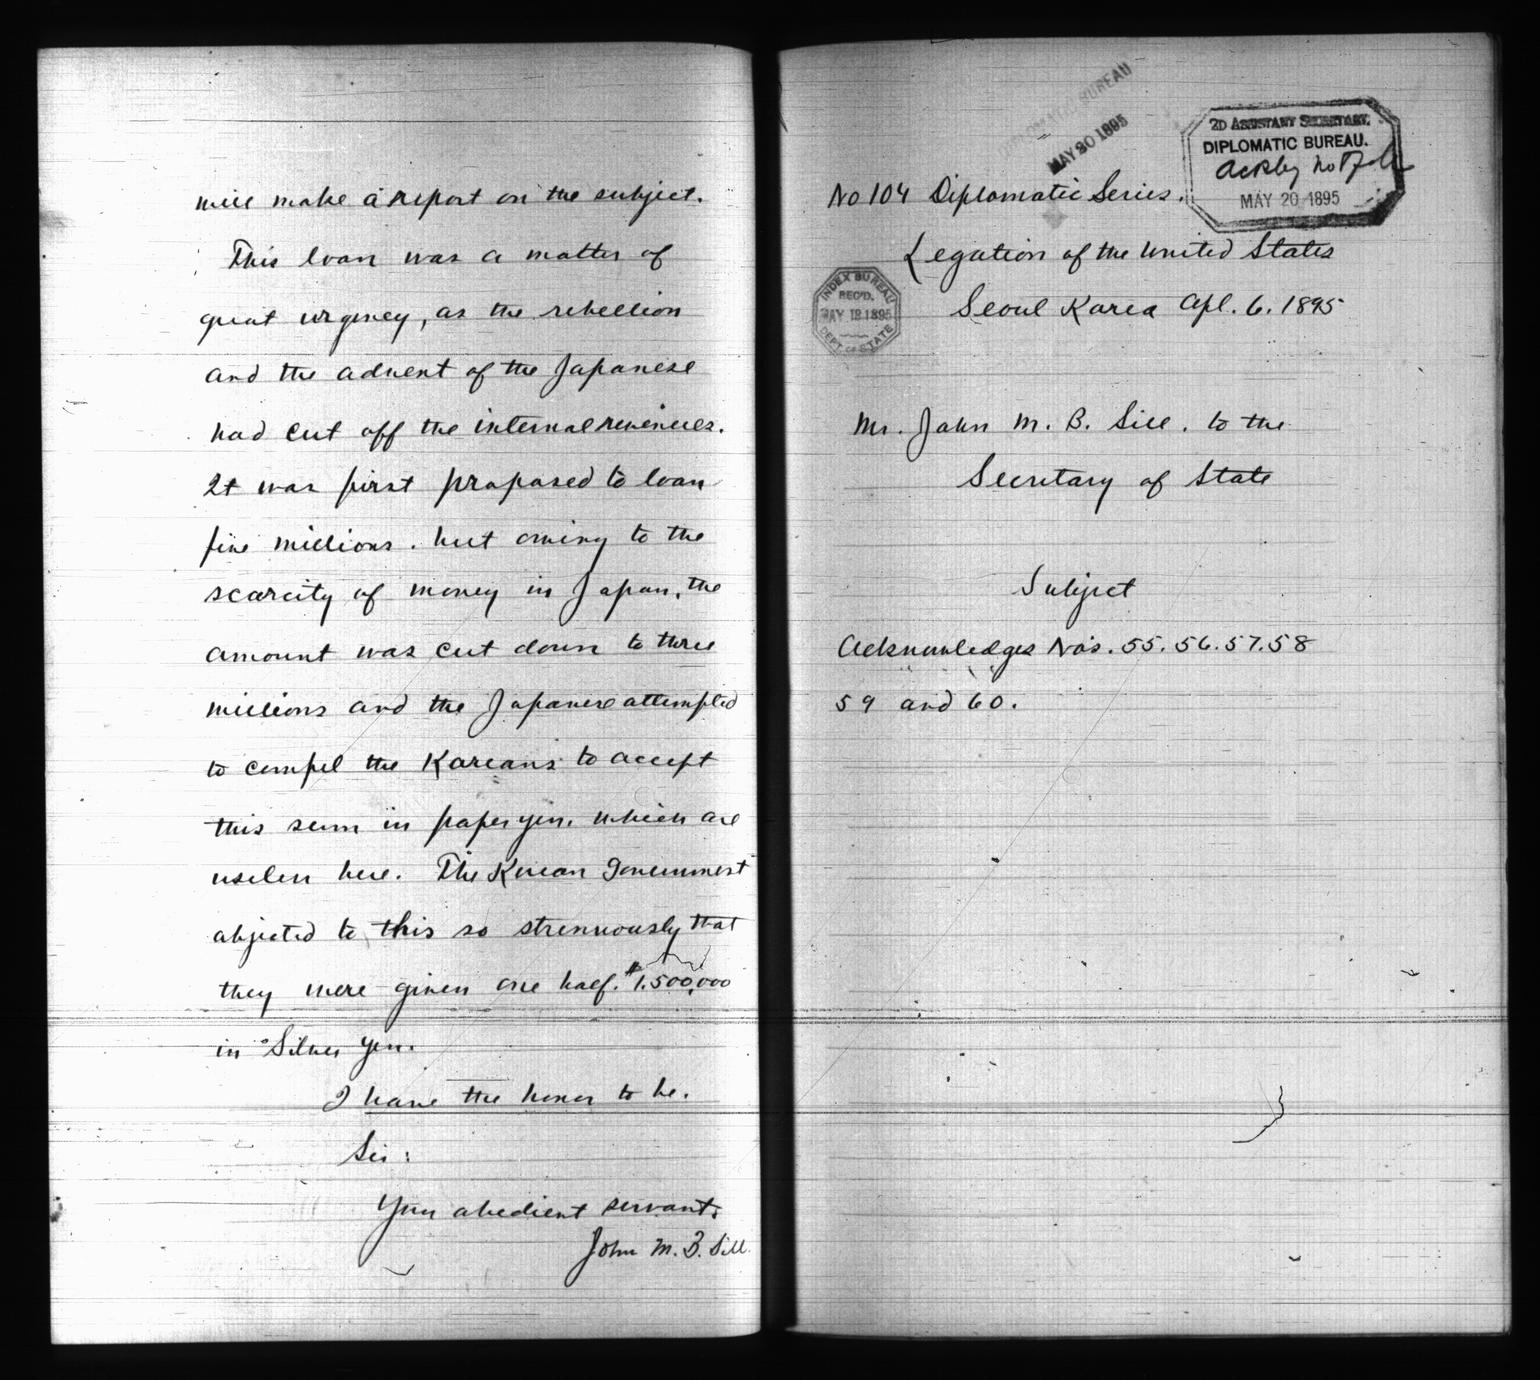 will make a report on the subject.
This loan was a matter of
great urgency, as the rebellion
and the advent of the Japanese
had cut off the internal revenues.
It was first proposed to loan
five millions. but owing to the
scarcity of money in Japan, the
amount was cut down to three
millions and the Japanese attempted
to compel the Koreans to accept
this sum in paper yen. which are
useless here. The Korean Government
objected to this so strennuously that
they were given one half. $1.500,000
in Silver yen.
I have the honor to be.
Sir:
Your obedient servant.
John M. B. Sill.
DIPLOMATIC BUREAU
MAY 20 1895
2D ASSISTANT SECRETARY.
DIPLOMATIC BUREAU.
MAY 20 1895
No 104 Diplomatic Series.
Legation of the United States
INDEX BUREAU
REC'D.
MAY 18 1895
DEPT. OF STATE
Seoul Korea Apl. 6. 1895
Mr. John M. B. Sill. to the
Secretary of State
Subject
Acknowledges Nos. 55. 56. 57. 58
59 and 60.